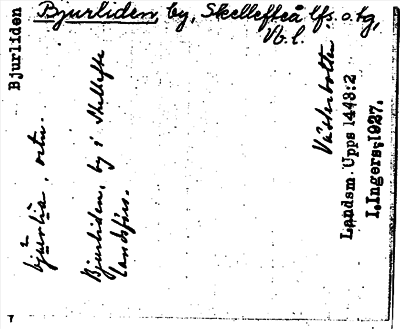 Bjurliden
Bjurliden, by, Skellefteå lfs. o. tg,
Vb. l.
Västerbotten
bjurlia, ortn.
Bjurliden, by i Skellefte
landsförs.
Landsm. Upps 1448:2
I.Ingers.1927.